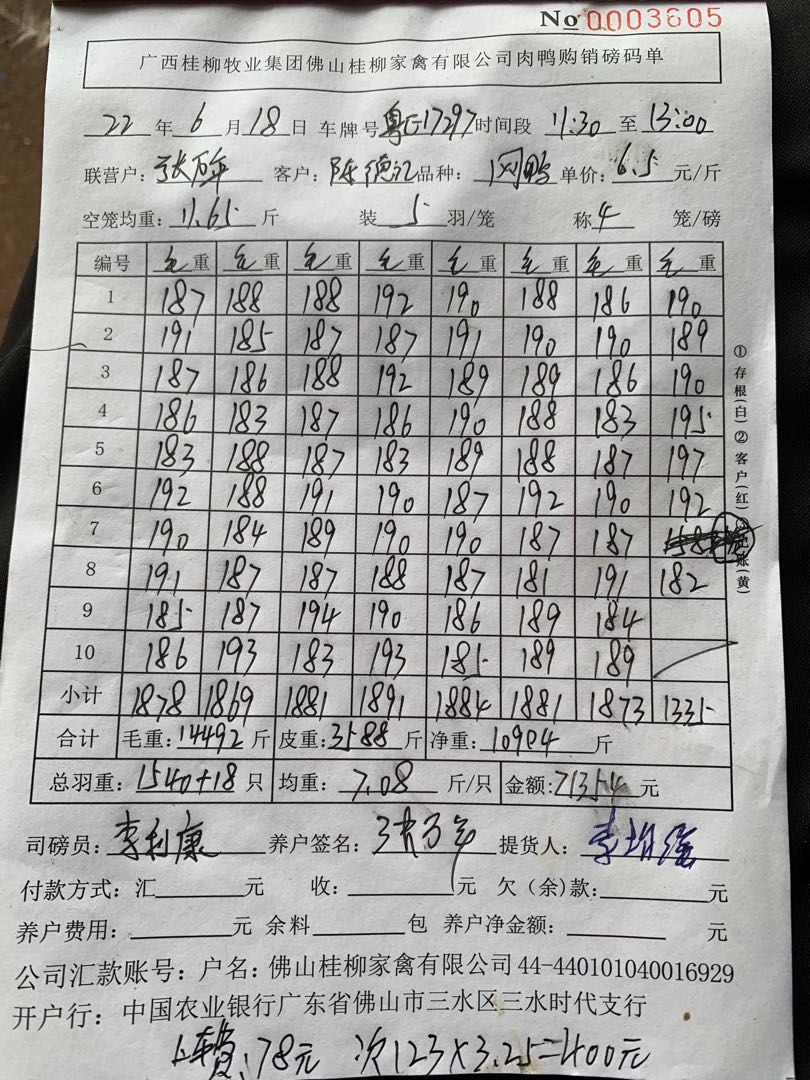 No 0003605
广西桂柳牧业集团佛山桂柳家禽有限公司肉鸭购销磅码单
22 年 6 月 18 日 车牌号 粤E17297 时间段 11:30 至 13:00
联营户: 张万年 客户: 陈德 品种: 网鸭 单价: 6.5 元/斤
空笼均重: 11.65 斤 装 5 羽/笼 称 4 笼/磅
编号 毛重 毛重 毛重 毛重 毛重 毛重 毛重 毛重
1 187 188 188 192 190 188 186 190
2 191 185 187 187 191 190 190 189
3 187 186 188 192 189 189 186 190
4 186 183 187 186 190 188 183 195
5 183 188 187 183 189 188 187 197
6 192 188 191 190 187 192 190 192
7 190 184 189 190 190 187 187
8 191 187 187 188 187 181 191 182
9 185 187 194 190 186 189 184
10 186 193 183 193 185 189 189
小计 1878 1869 1881 1891 1884 1881 1873 1335
合计 毛重: 14492 斤 皮重: 3588 斤 净重: 10904 斤
总羽重: 1540+18 只 均重: 7.08 斤/只 金额: 71354 元
司磅员: 李利康 养户签名: 张万年 提货人: 李
付款方式: 汇 元 收: 元 欠(余)款: 元
养户费用: 元 余料 包 养户净金额: 元
公司汇款账号: 户名: 佛山桂柳家禽有限公司 44-440101040016929
开户行: 中国农业银行广东省佛山市三水区三水时代支行
上车费: 78元 次123×3.25=400元
①存根(白)②客户(红)账(黄)